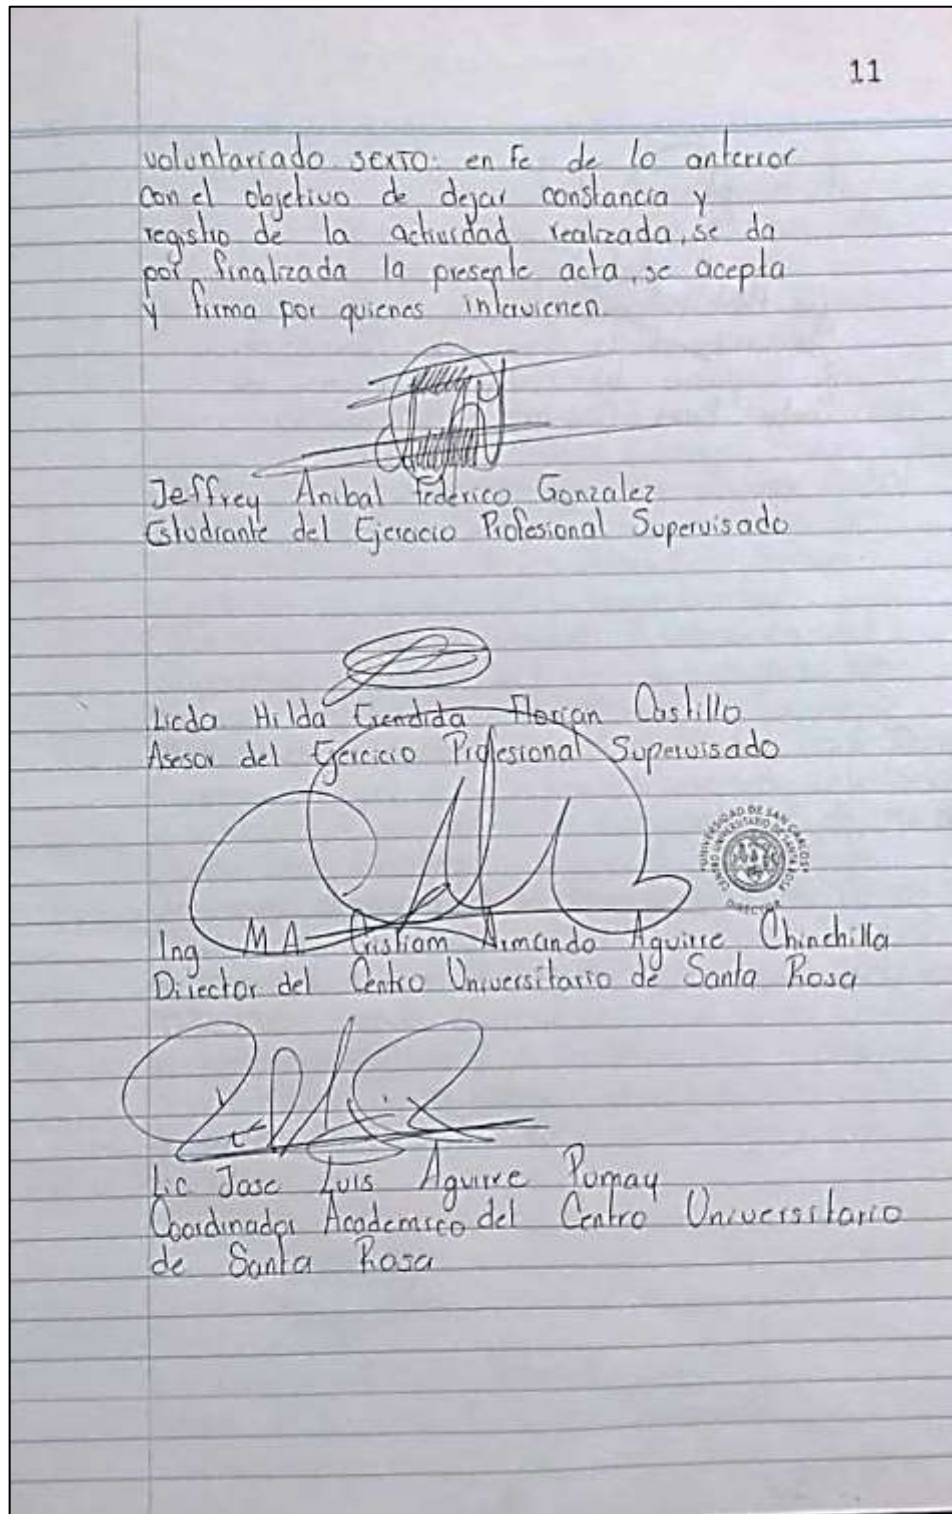 11
voluntariado SEXTO: en fe de lo anterior
con el objetivo de dejar constancia y
registro de la actividad realizada, se da
por finalizada la presente acta, se acepta
y firma por quienes intervienen.
Jeffrey Anibal Federico Gonzalez
Estudiante del Ejercicio Profesional Supervisado
Licda Hilda Florian Castillo
Asesor del Ejercicio Profesional Supervisado
UNIVERSIDAD DE SAN CARLOS
CENTRO UNIVERSITARIO DE SANTA ROSA
DIRECTOR
Ing M.A. Cristiam Armando Aguirre Chinchilla
Director del Centro Universitario de Santa Rosa
Lic Jose Luis Aguirre Pumay
Coordinador Academico del Centro Universitario
de Santa Rosa